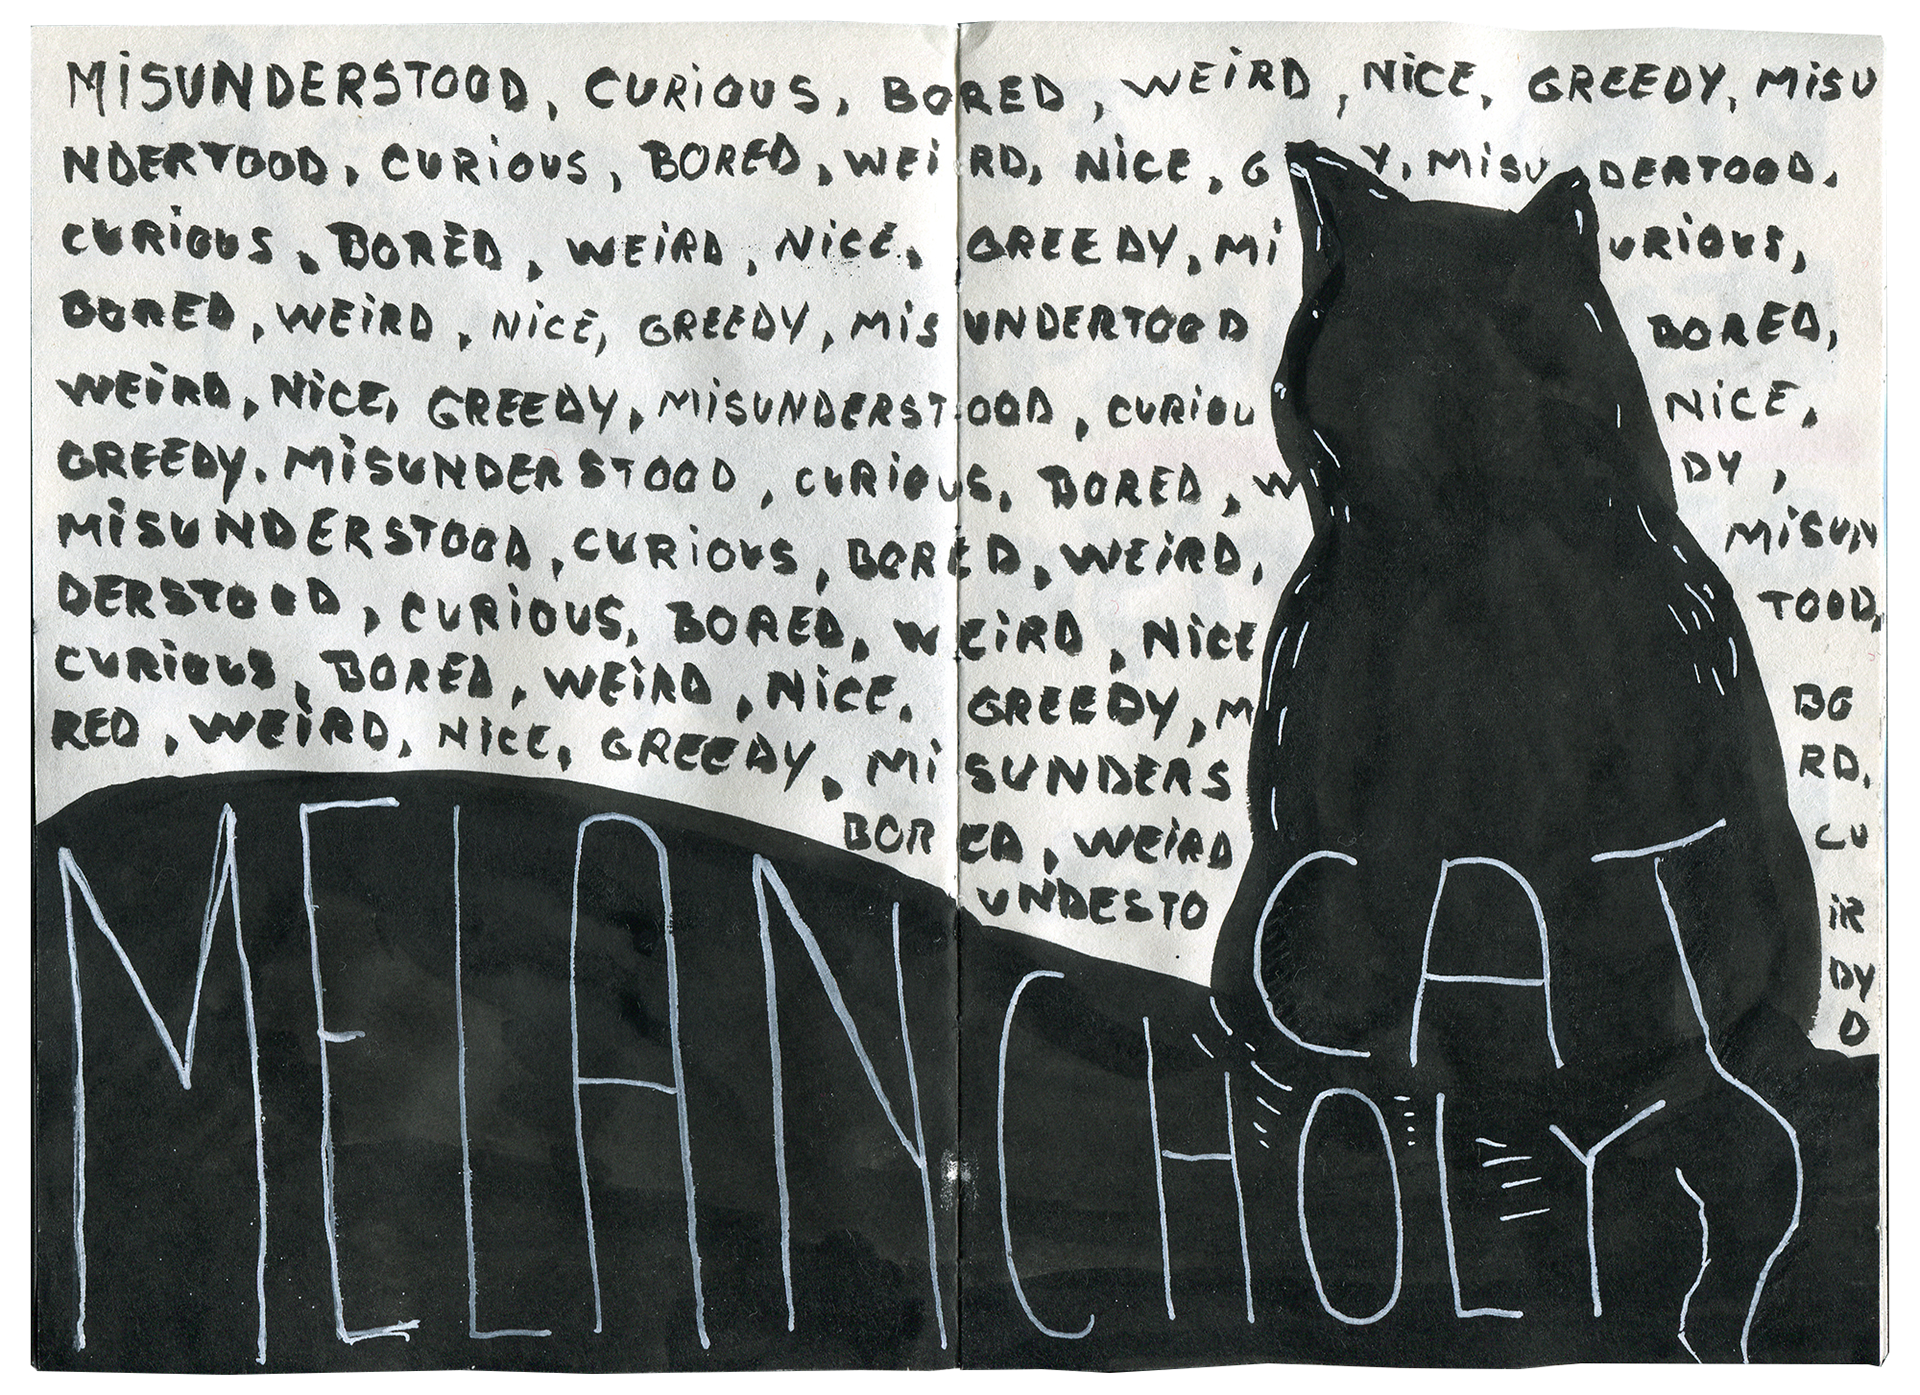 MiSUNDERSTOOD, CURiOUS, BORED, WEiRD, NiCE, GREEDY, MiSU
NDERTOOD, CURiOUS, BORED, WEiRD, NiCE, G Y, MiSU DERTOOD,
CURiOUS, BORED, WEiRD, NiCE, GREEDY, Mi URiOUS,
BORED, WEiRD, NiCE, GREEDY, MiSUNDERTOOD BORED,
WEiRD, NiCE, GREEDY, MiSUNDERSTOOD, CURiOU NiCE,
GREEDY. MiSUNDERSTOOD, CURiOUS, BORED, W DY,
MiSUNDERSTOOD, CURiOUS, BORED, WEiRD, MiSUN
DERSTOOD, CURiOUS, BORED, WEiRD, NiCE TOOD,
CURiOUS, BORED, WEiRD, NiCE, GREEDY, M BO
RED, WEiRD, NiCE, GREEDY, MiSUNDERS RD,
BORED, WEiRD CU
UNDESTO iR
DY
D
CAT
MELANCHOLY